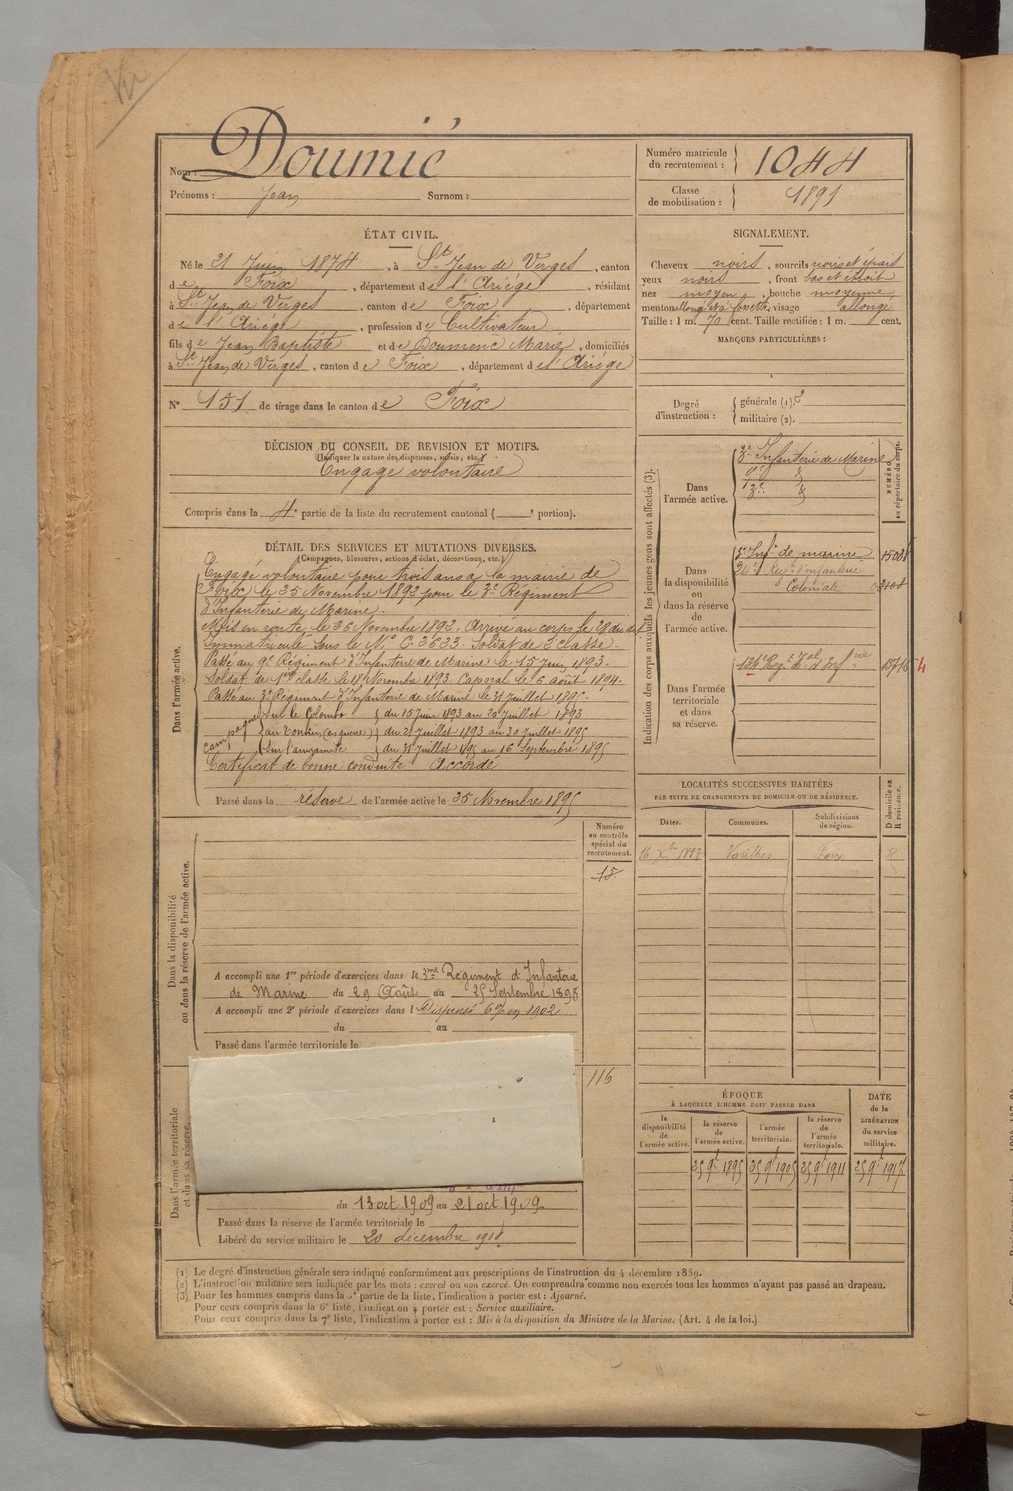 Nom : Doumié
Prénoms : Jean Surnom :
Numéro matricule du recrutement : 1044
Classe de mobilisation : 1891
ÉTAT CIVIL.
Né le 21 Juin 1874, à St Jean de Verges, canton
de Foix, département de l'Ariège, résidant
à St Jean de Verges, canton de Foix, département
de l'Ariège, profession de Cultivateur
fils de Jean Baptiste et de Doumenc Marie, domiciliés
à St Jean de Verges, canton de Foix, département de l'Ariège
N° 151 de tirage dans le canton de Foix
SIGNALEMENT.
Cheveux noirs, sourcils noirs et épais
yeux noirs, front bas et étroit
nez moyen, bouche moyenne
menton allongé à fossette, visage allongé
Taille : 1 m. 70 cent. Taille rectifiée : 1 m. cent.
MARQUES PARTICULIÈRES :
Degré d'instruction : générale (1). 2
militaire (2).
DÉCISION DU CONSEIL DE REVISION ET MOTIFS.
(Indiquer la nature des dispenses, sursis, etc.)
Engagé volontaire
Compris dans la 4e partie de la liste du recrutement cantonal ( e portion).
DÉTAIL DES SERVICES ET MUTATIONS DIVERSES.
(Campagnes, blessures, actions d'éclat, décorations, etc.)
Dans l'armée active.
Engagé volontaire pour trois ans à la mairie de
Foix le 25 Novembre 1892 pour le 3e Régiment
d'Infanterie de Marine.
Mis en route le 26 Novembre 1892. Arrivé au corps le 28 du dit
Immatriculé sous le N° C.3633. Soldat de 2e classe.
Passé au 9e Régiment d'Infanterie de Marine le 15 juin 1893.
Soldat de 1re classe le 18 Novembre 1893 Caporal le 6 août 1894.
Passé au 3e Régiment d'Infanterie de Marine le 31 juillet 1895.
Campagnes sur le Colombo du 15 juin 1893 au 20 juillet 1893
au Tonkin (en guerre) du 21 juillet 1893 au 30 juillet 1895
sur l'annamite du 31 juillet 1895 au 16 Septembre 1895
Certificat de bonne conduite : Accordé
Passé dans la réserve de l'armée active le 25 Novembre 1895
Indication des corps auxquels les jeunes gens sont affectés (3).
NUMÉRO au répertoire du corps.
Dans l'armée active.
3e Infanterie de Marine
9e
3e
Dans la disponibilité ou dans la réserve de l'armée active.
5e Inf. de marine
24e Régt d'infanterie
Coloniale
Dans l'armée territoriale et dans sa réserve.
134e Régt Tal d'Infrie
LOCALITÉS SUCCESSIVES HABITÉES
PAR SUITE DE CHANGEMENTS DE DOMICILE OU DE RÉSIDENCE.
Dates. Communes. Subdivisions de région. D domicile ou R résidence.
16 Xbre 1897 Varilhes Foix R
Dans la disponibilité ou dans la réserve de l'armée active.
Numéro au contrôle spécial du recrutement.
15
A accompli une 1re période d'exercices dans le 3me Régiment d'Infanterie
de Marine du 29 Août au 25 Septembre 1898
A accompli une 2e période d'exercices dans l Dispensé en 1902
du au
Passé dans l'armée territoriale le
Dans l'armée territoriale et dans sa réserve.
116
du 13 oct 1909 au 21 oct 1909
Passé dans la réserve de l'armée territoriale le
Libéré du service militaire le 20 décembre 1918
ÉPOQUE
À LAQUELLE L'HOMME DOIT PASSER DANS
la disponibilité de l'armée active. la réserve de l'armée active. l'armée territoriale. la réserve de l'armée territoriale.
DATE de la LIBÉRATION du service militaire.
25 9bre 1895 25 9bre 1905 25 9bre 1911 25 9bre 1917
(1) Le degré d'instruction générale sera indiqué conformément aux prescriptions de l'instruction du 4 décembre 1889.
(2) L'instruction militaire sera indiquée par les mots : exercé ou non exercé. On comprendra comme non exercés tous les hommes n'ayant pas passé au drapeau.
(3) Pour les hommes compris dans la 5e partie de la liste, l'indication à porter est : Ajourné.
Pour ceux compris dans la 6e liste, l'indication à porter est : Service auxiliaire.
Pour ceux compris dans la 7e liste, l'indication à porter est : Mis à la disposition du Ministre de la Marine. (Art. 4 de la loi.)